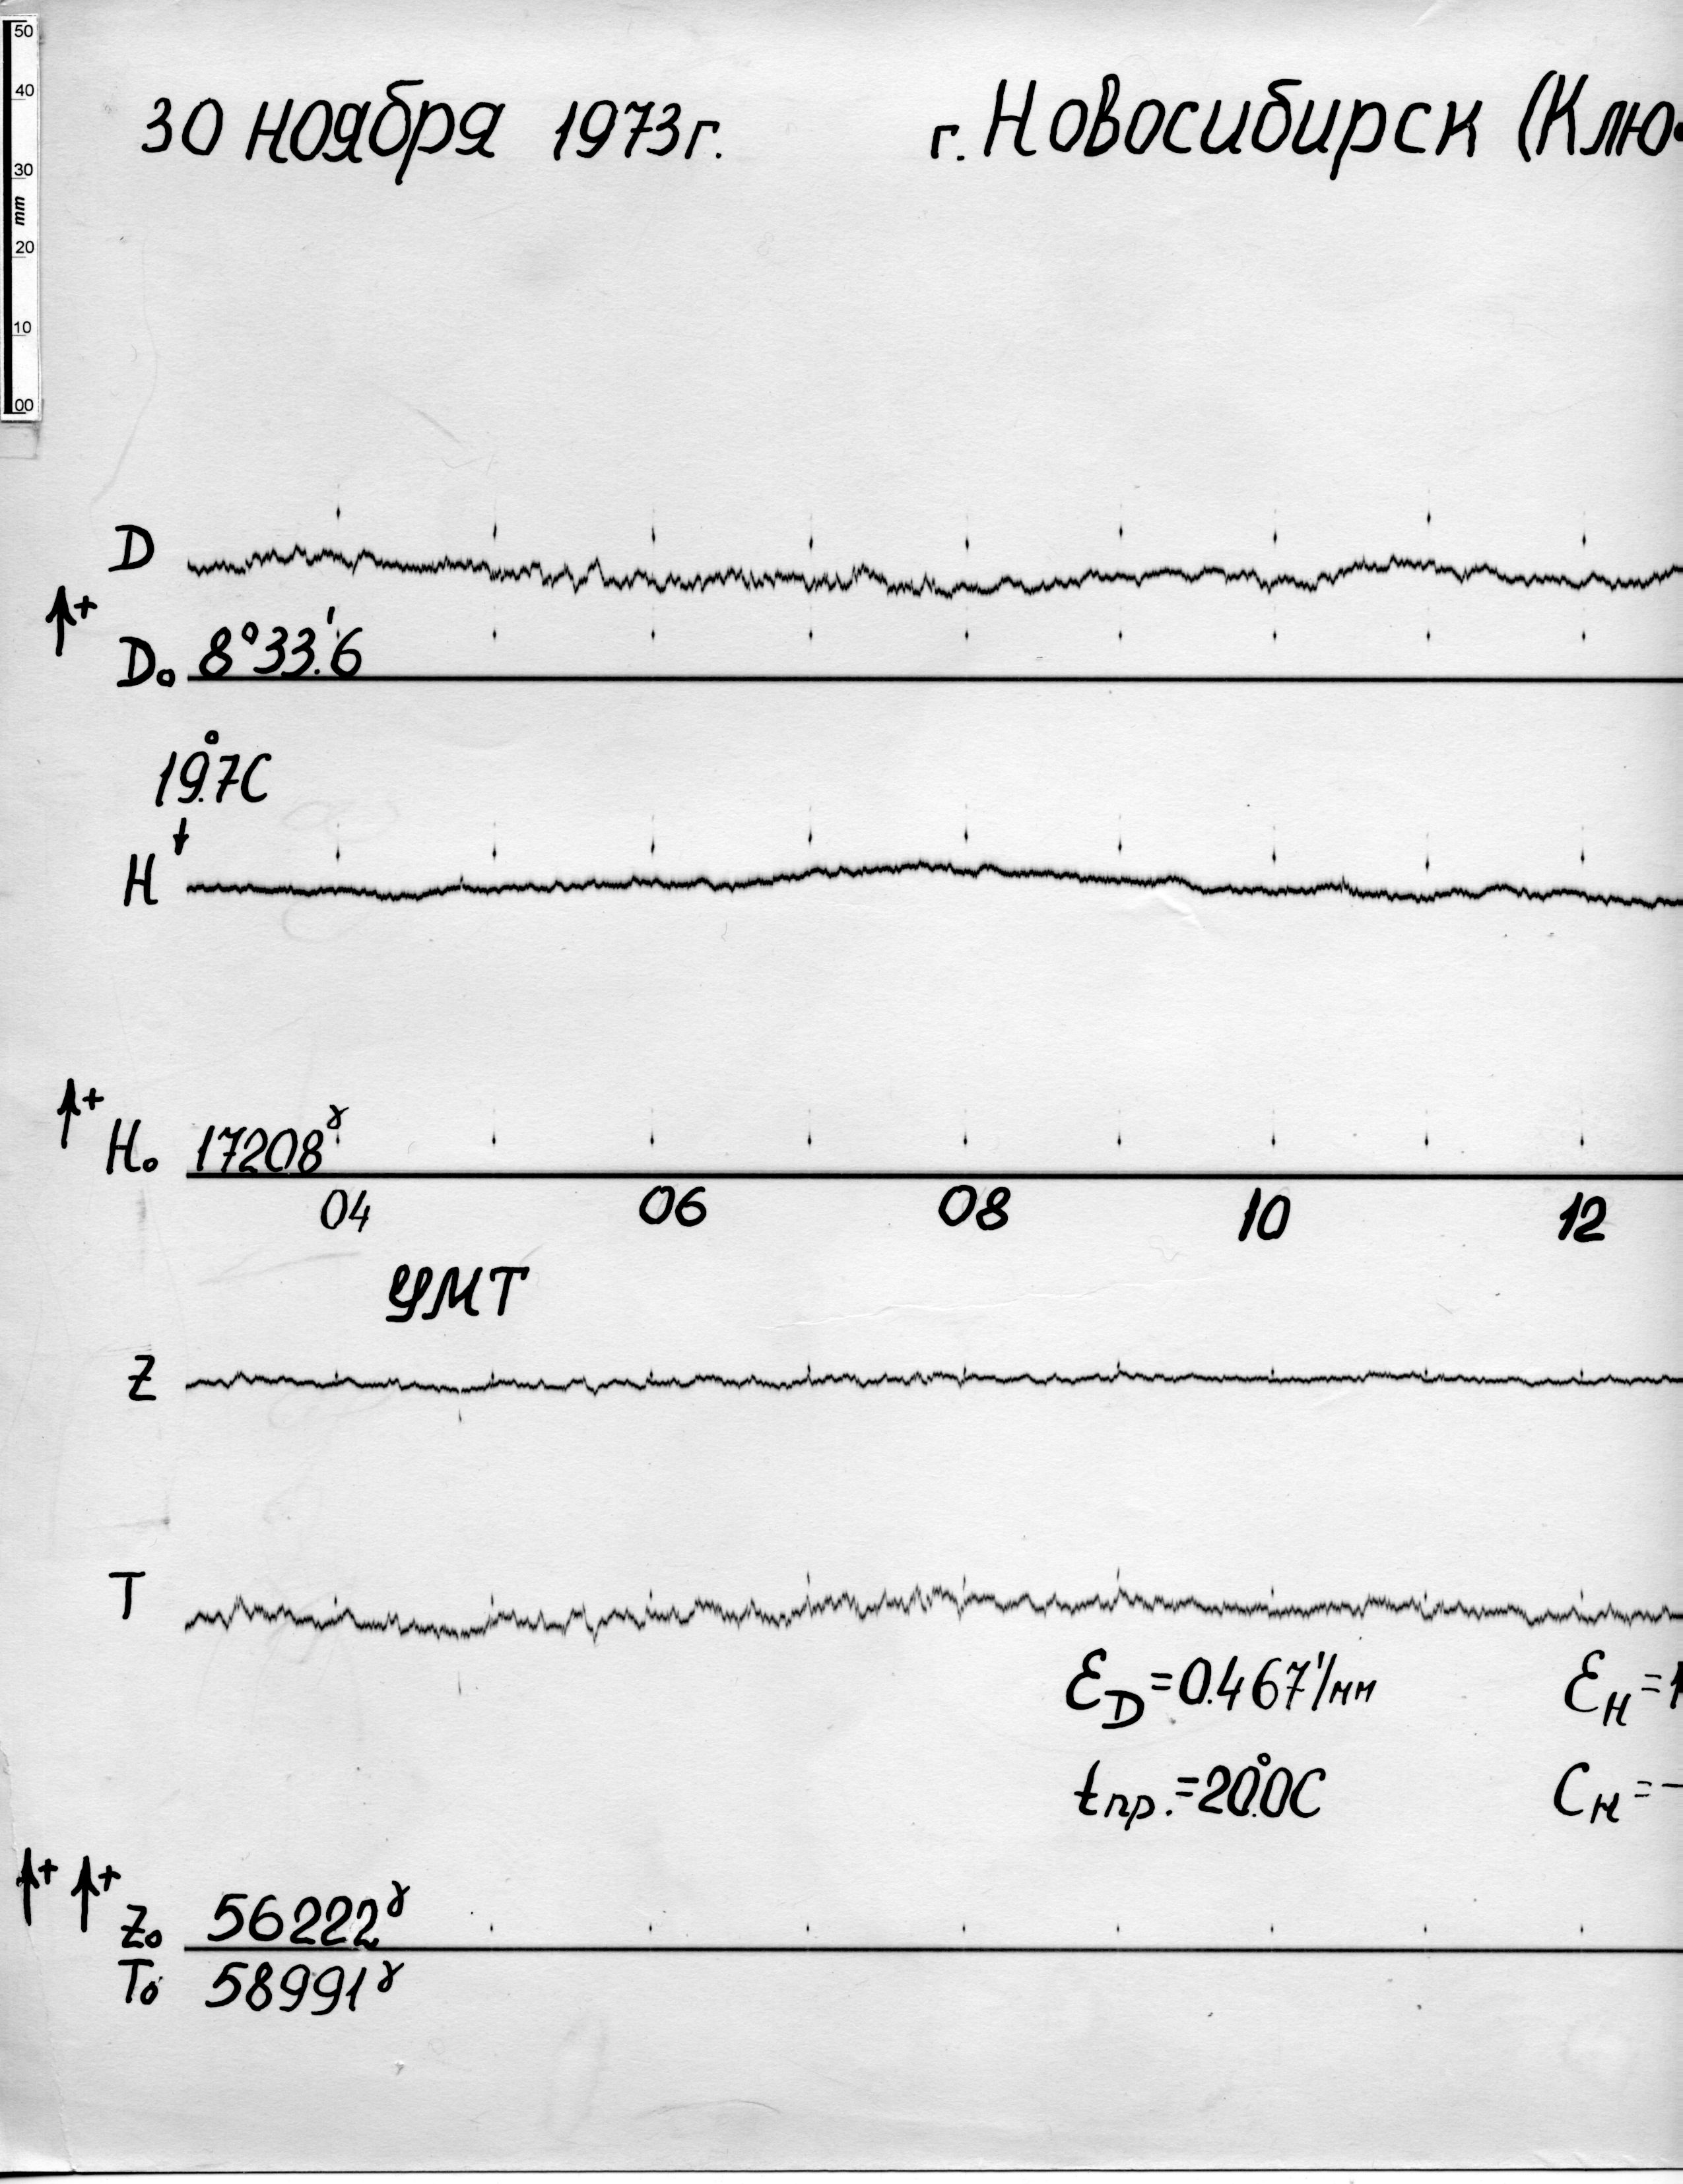 50
40
30
mm
20
10
00
30 ноября 1973г. г. Новосибирск (Клю
D
↑+
D₀ 8°33.'6
19.°7C
H
↑+
H₀ 17208ˠ
04 06 08 10 12
УМТ
Z
T
Ɛ_D=0.467'/мм Ɛ_H=1
tпр.=20.°0C C_H=-
↑+ ↑+
Z₀ 56222ˠ
T₀ 58991ˠ